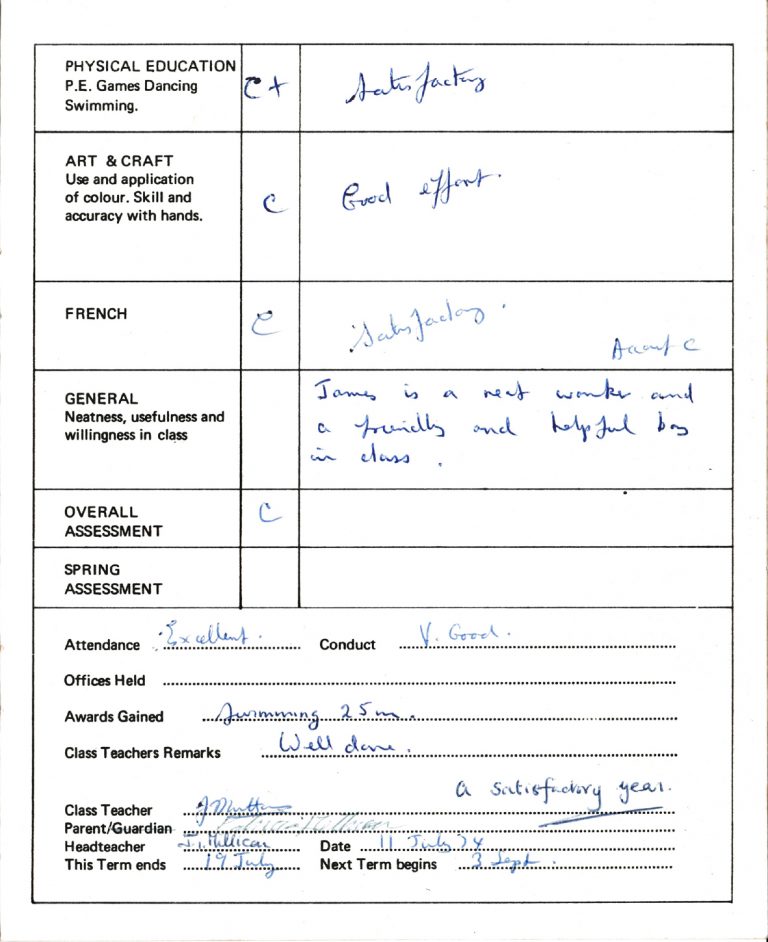 PHYSICAL EDUCATION
P.E. Games Dancing
Swimming.
C+
Satisfactory
ART & CRAFT
Use and application
of colour. Skill and
accuracy with hands.
C
Good effort.
FRENCH
C
Satisfactory.
C
GENERAL
Neatness, usefulness and
willingness in class
James is a neat worker and
a friendly and helpful boy
in class.
OVERALL
ASSESSMENT
C
SPRING
ASSESSMENT
Attendance Excellent. Conduct V. Good.
Offices Held
Awards Gained Swimming 25m.
Class Teachers Remarks Well done.
a satisfactory year.
Class Teacher
Parent/Guardian
Headteacher Date 11 July 74
This Term ends 19 July Next Term begins 3 Sept.